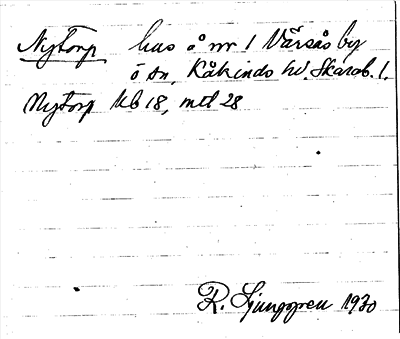 Nytorp hus å nr 1 Vårsås by
ö sn, Kåkinds hd. Skarab. l.
Nytorp Kb 18, mtl 28
R. Ljunggren 1930